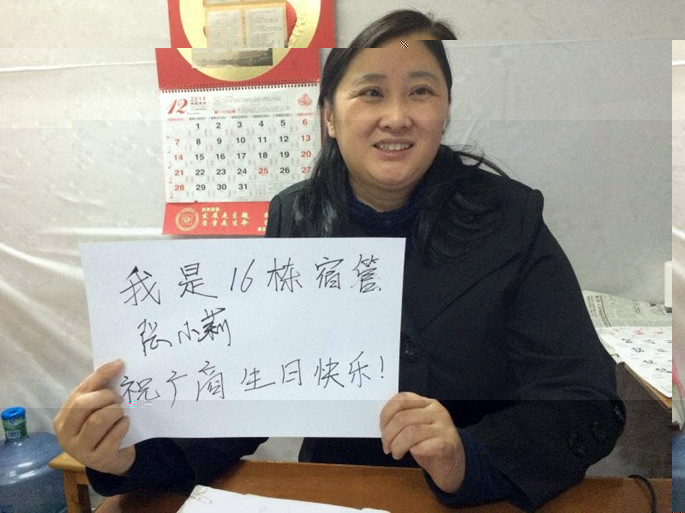 12 2014
1 2 3 4 5 6
7 8 9 10 11 12 13
14 15 16 17 18 19 20
21 22 23 24 25 26 27
28 29 30 31
发展是主题
质量是生命
我是16栋宿管
张小莉
祝广商生日快乐!